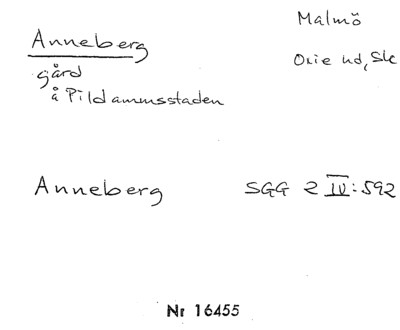 Anneberg
gård
å Pildammsstaden
Malmö
Oxie hd, Sk
Anneberg SGG 2 IV:592
Nr 16455